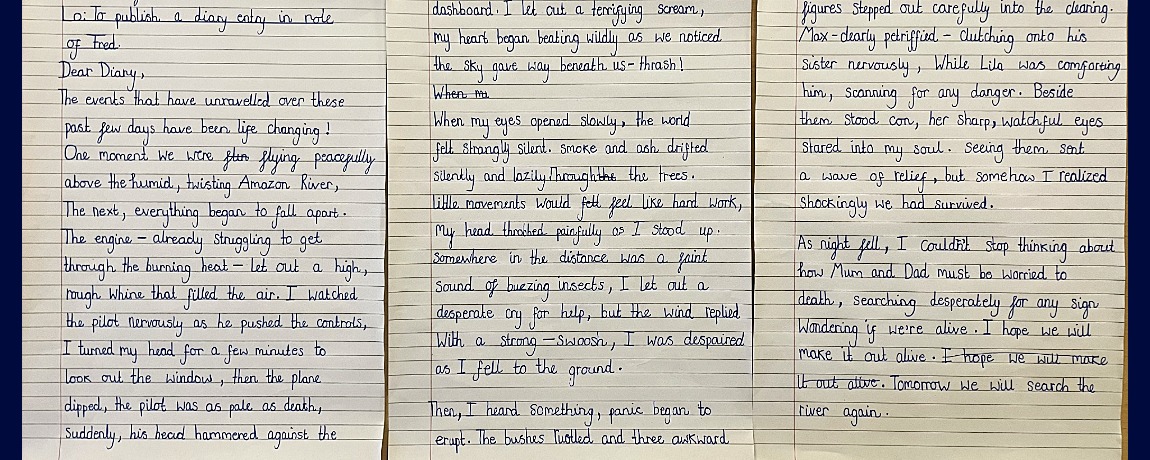 Lo: To publish a diary entry in role
of Fred.
Dear Diary,
The events that have unravelled over these
past few days have been life changing!
One moment we were flying peacefully
above the humid, twisting Amazon River,
The next, everything began to fall apart.
The engine – already struggling to get
through the burning heat – let out a high,
rough whine that filled the air. I watched
the pilot nervously as he pushed the controls,
I turned my head for a few minutes to
look out the window, then the plane
dipped, the pilot was as pale as death,
Suddenly, his head hammered against the
dashboard. I let out a terrifying scream,
my heart began beating wildly as we noticed
the sky gave way beneath us - thrash!
When
When my eyes opened slowly, the world
felt strangly silent. smoke and ash drifted
silently and lazily through the the trees.
little movements would felt feel like hard work,
My head throbbed painfully as I stood up.
Somewhere in the distance was a faint
Sound of buezing insects, I let out a
desperate cry for help, but the wind replied
With a strong – Swoosh, I was despaired
as I fell to the ground.
Then, I heard something, panic began to
erupt. The bushes and three awkward
figures stepped out carefully into the clearing.
Max - clearly petriffied - Clutching onto his
Sister nervously, While Lila was comforting
him, scanning for any danger. Beside
them stood con, her sharp, watchful eyes
stared into my soul. Seeing them sent
a wave of relief, but somehow I realized
shockingly we had survived.
As night fell, I couldn't stop thinking about
how Mum and Dad must be worried to
death, searching desperately for any sign
Wondering if we're alive. I hope we will
make it out alive. I hope we will make
it out alive. Tomorrow we will search the
river again.